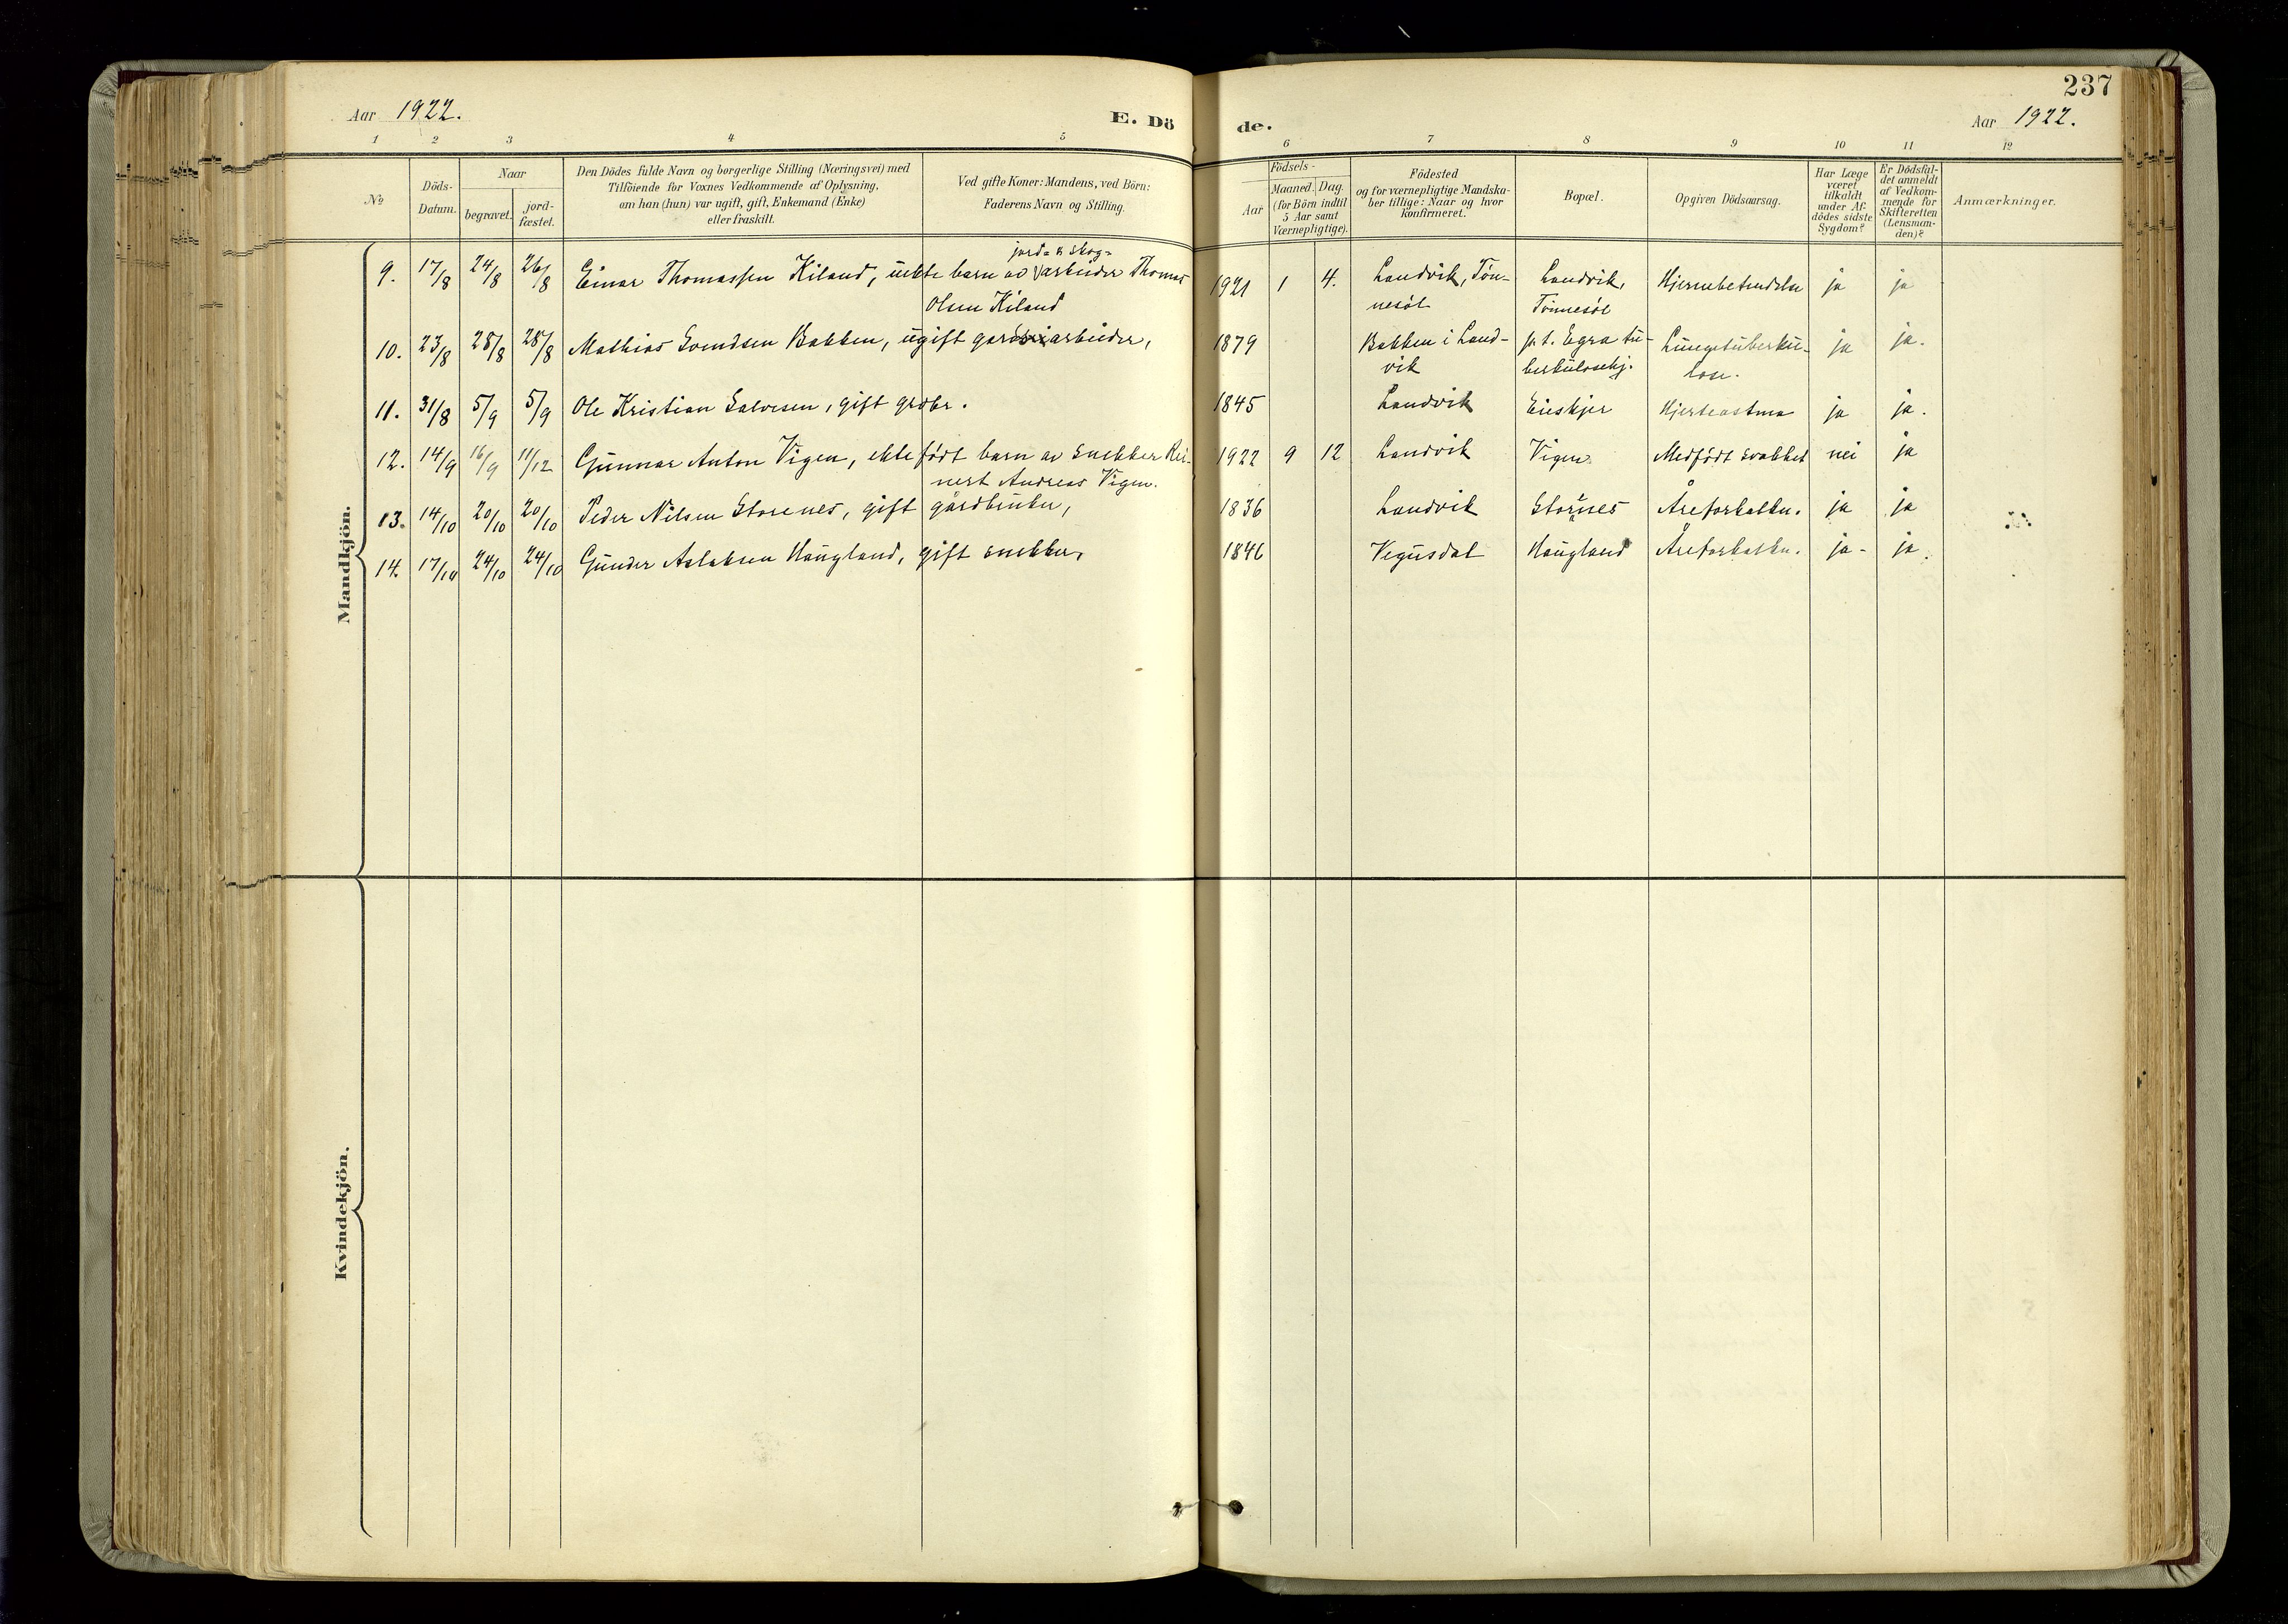 237
Aar 1922.
E. Dö
de.
Aar 1922.
1 2 3 4 5 6 7 8 9 10 11 12
№
Döds-
Datum.
Naar
begravet.
jord-
fæstet.
Den Dödes fulde Navn og borgerlige Stilling (Næringsvei) med
Tilföiende for Voxnes Vedkommende af Oplysning,
om han (hun) var ugift, gift, Enkemand (Enke)
eller fraskilt.
Ved gifte Koner: Mandens, ved Börn:
Faderens Navn og Stilling.
Födsels-
Aar
Maaned. Dag.
(for Börn indtil
5 Aar samt
Værnepligtige).
Födested
og for værnepligtige Mandska-
ber tillige: Naar og hvor
konfirmeret.
Bopæl.
Opgiven Dödsaarsag.
Har Læge
været
tilkaldt
under Af-
dödes sidste
Sygdom?
Er Dödsfal-
det anmeldt
af Vedkom-
mende for
Skifteretten
(Lensman-
den)?
Anmærkninger.
Mandkjön.
jord- & skog-
9. 17/8 24/8 26/8 Einar Thomassen Kiland, uekte barn av arbeider Thomas 1921 1 4. Landvik, Tön- Landvik, Hjernebetendelse ja ja
Olsen Kiland nesöl Tönnesöl
10. 23/8 28/8 28/8 Mathias Svendsen Bakken, ugift gardsarbeider, 1879 Bakken i Land- p.t. Egra tu- Lungetuberku- ja ja.
vik berkulosehj. lose.
11. 31/8 5/9 5/9 Ole Kristian Salvesen, gift grdbr. 1845 Landvik Eieskjer Hjerteastma ja ja.
12. 14/9 16/9 11/12 Gunnar Anton Vigen, ektefödt barn av snekker Rei- 1922 9 12 Landvik Vigen Medfödt svakhet nei ja
nert Andreas Vigen.
13. 14/10 20/10 20/10 Peder Nilsen Storenes, gift gårdbruker, 1836 Landvik Stornes Åreforkalkn. ja ja
14. 17/10 24/10 24/10 Gunder Aslaksen Haugland, gift snekker, 1846 Vegusdal Haugland Åreforkalkn. ja - ja.
Kvindekjön.